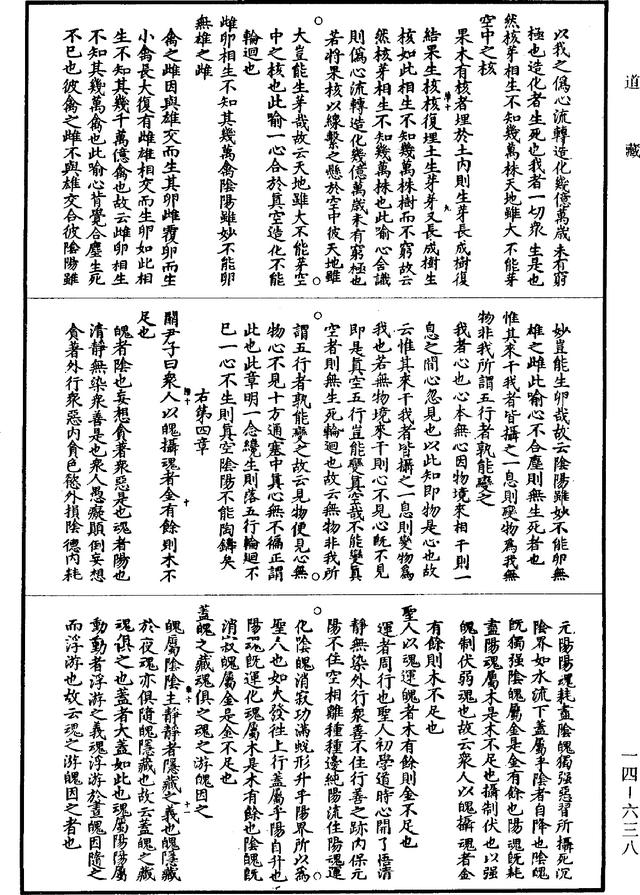 道藏
以我之偽心流轉造化幾億萬歲未有窮
極也造化者生死也我者一切衆生是也
然核芽相生不知幾萬株天地雖大不能芽
空中之核
果木有核者埋於土内則生芽長成樹復
結果生核核復埋土生芽芽又長成樹生
核如此相生不知幾萬株樹而不窮故云
然核芽相生不知幾萬株也此喻心含識
則偽心流轉造化幾億萬歲未有窮極也
若將果核以線繫之懸於空中彼天地雖
大豈能生芽哉故云天地雖大不能芽空
中之核也此喻一心合於真空造化不能
輪迴也
雌卵相生不知其幾萬禽陰陽雖妙不能卵
無雄之雌
禽之雌因與雄交而生其卵雌覆卵而生
小禽長大復有雌雄相交而生卵如此相
生不知其幾千萬億禽也故云雌卵相生
不知其幾萬禽也此喻心背覺合塵生死
不已也彼禽之雌不與雄交合彼陰陽雖
妙豈能生卵哉故云陰陽雖妙不能卵無
雄之雌此喻心不合塵則無生死者也
惟其來干我者皆攝之一息則變物為我無
物非我所謂五行者孰能變之
我者心也心本無心因物境來相干則一
息之間心忽見也以此知即物是心也故
云惟其來干我者皆攝之一息則變物為
我也若無物境來干則心不見心既不見
即是真空五行豈能變真空哉不能變真
空者則無生死輪迴也故云無物非我所
謂五行者孰能變之故云見物便見心無
物心不見十方通塞中真心無不徧正謂
此也此章明一念纔生則落五行輪迴不
已一心不生則真空陰陽不能陶鑄矣
右第四章
關尹子曰衆人以魄攝魂者金有餘則木不
足也
魄者陰也妄想貪著衆惡是也魂者陽也
清靜無染衆善是也衆人愚癡顛倒妄想
貪著外行衆惡内貪色慾外損陰德内耗
元陽陽魂耗盡陰魄獨強惡習所攝死沉
陰界如水流下蓋屬乎陰者自降也陰魄
既獨强陰魄屬金是金有餘也陽魂既耗
盡陽魂屬木是木不足也攝制伏也以强
魄制伏弱魂也故云衆人以魄攝魂者金
有餘則木不足也
聖人以魂運魄者木有餘則金不足也
運者周行也聖人初學道時心開了悟清
靜無染外行衆善不住行善之跡内保元
陽不住空相雖種種邊純陽流住陽魂運
化陰魄消寂功滿蛻形升乎陽界所以為
聖人也如火發往上行蓋屬乎陽自升也
陽魂既運化魂屬木是木有餘也陰魄既
消寂魄屬金是金不足也
蓋魄之藏魂俱之魂之游魄因之
魄屬陰陰主靜靜者隱藏之義也魄隱藏
於夜魂亦俱隨魄隱藏也故云蓋魄之藏
魂俱之也蓋者大蓋如此也魂屬陽陽屬
動動者浮游之義魂浮游於晝魄因隨之
而浮游也故云魂之游魄因之者也
一四－六三八